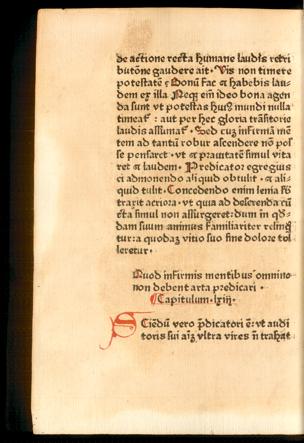 de actione recta humane laudis retri
butōne gaudere ait · Vis non timere
potestatē ? Bonū fac ⁊ habebis lau-
dem ex illa Neqꝫ em̄ ideo bona agen
da sunt vt potestas huiꝰ mundi nulla
timeat̄ : aut per hec gloria trāsitorie
laudis assumat̄ · Sed cuꝫ infirmā mē
tem ad tantū robur ascendere nō pos
se pensaret · vt ⁊ prauitatē simul vita
ret ⁊ laudem · Predicator egregius
ei admonendo aliquid obtulit · ⁊ ali-
quid tulit · Concedendo enim lenia
traxit acriora · vt quia ad deserenda cū
cta simul non assurgeret : dum in
dam suum animus familiariter
tur : a quodaꝫ vitio suo sine dolore tol
leretur ·
Quod infirmis mentibus omnino
non debent arta predicari ·
Capitulum · lxiij ·
Sciēdū vero p̄dicatori ē : vt audi
toris sui aīꝫ vltra vires n̄ trahat